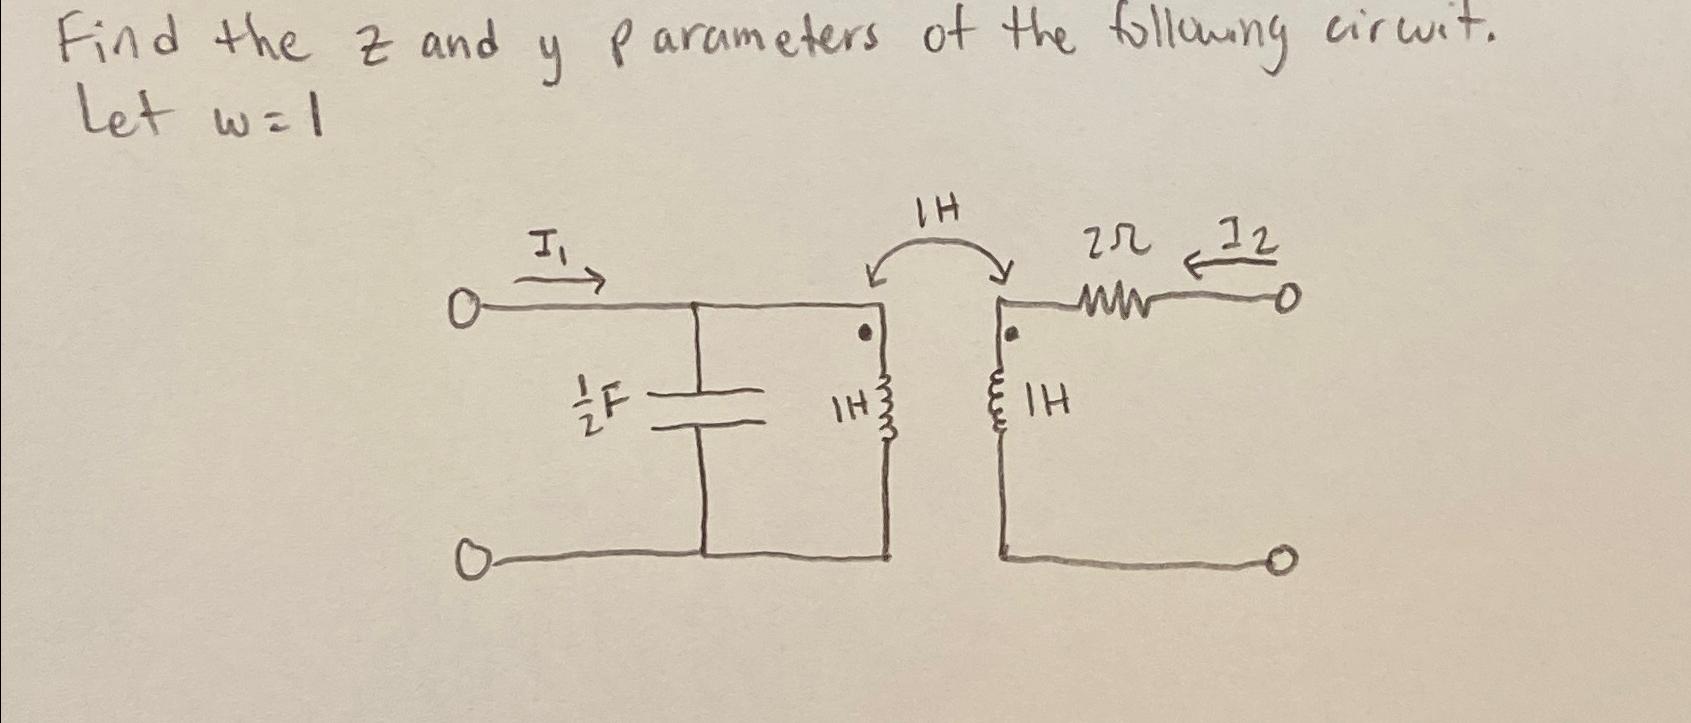 Find the z and y parameters of the following circuit.
Let w=1
1H
I1
2Ω
I2
1/2 F
1H
1H